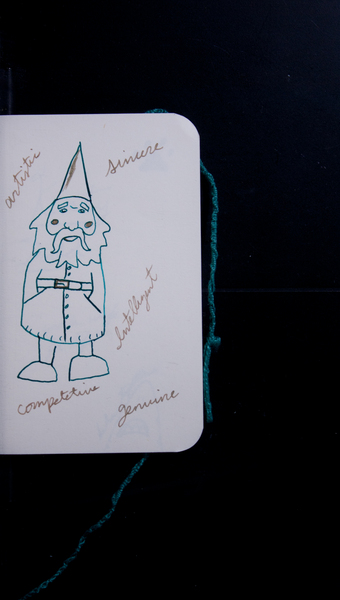 artistic
sincere
Intelligent
competetive
genuine